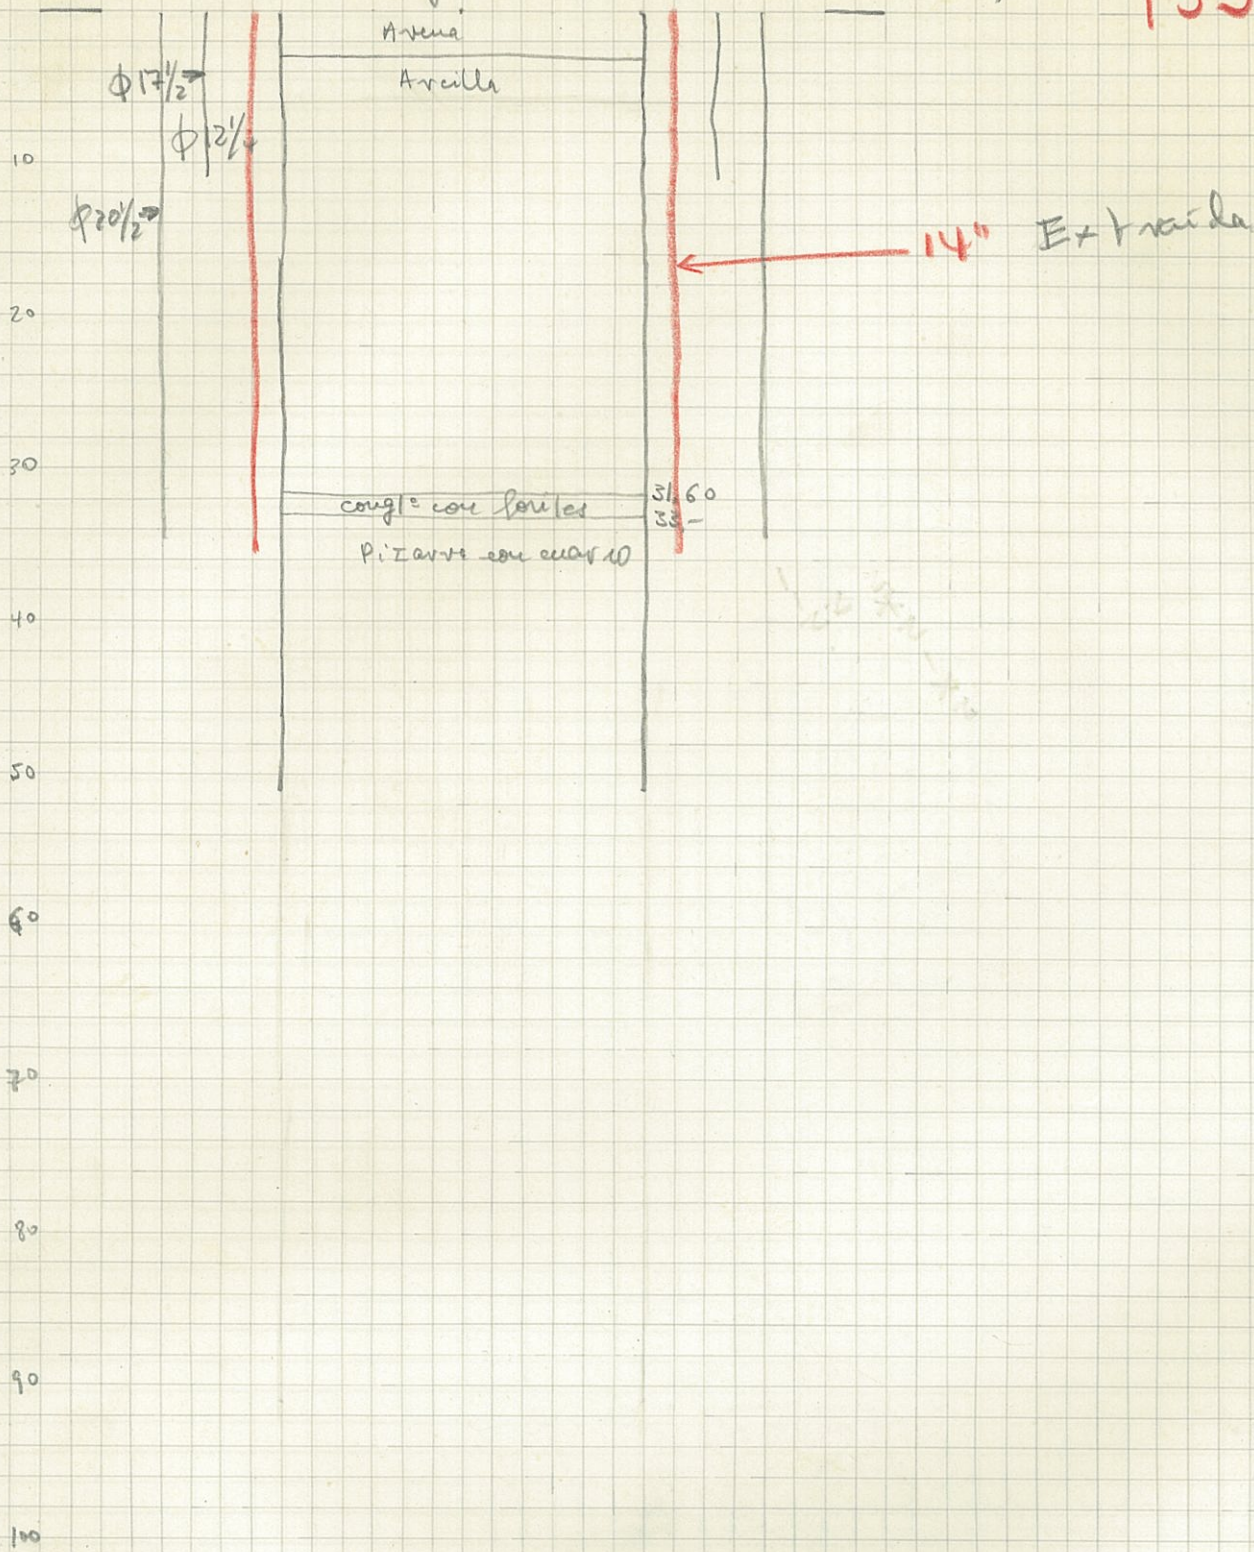 Arena
Arcilla
ϕ17 1/2
ϕ12 1/4
10
ϕ20 1/2
14" Extraida
20
30
congl° con fosiles 31,60
33,-
Pizarra con cuarzo
40
50
60
70
80
90
100